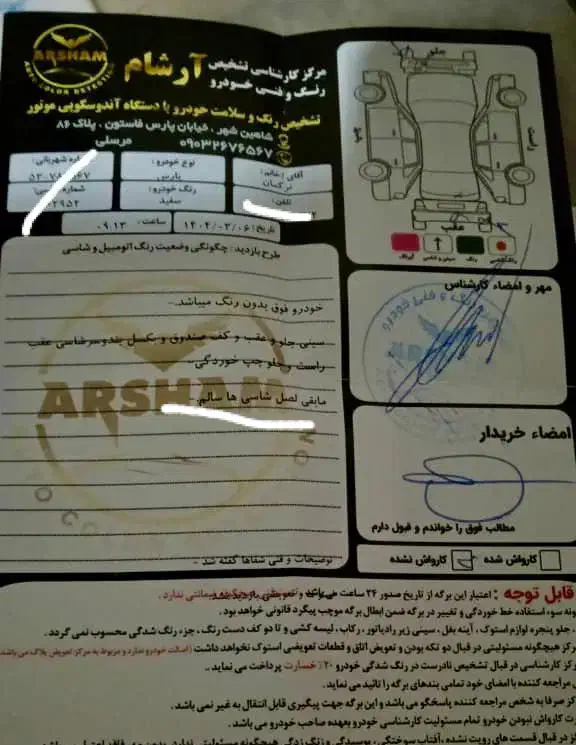 ARSHAM
AUTO COLOR DETECTION
مرکز کارشناسی تشخیص
رنگ و فنی خودرو
آرشام
تشخیص رنگ و سلامت خودرو با دستگاه آندوسکوپی موتور
شاهین شهر، خیابان پارس فاستون، پلاک ۸۶
۰۹۰۳۲۶۷۶۵۶۷
مرسلی
آقای/خانم:
ترکمان
نوع خودرو:
پارس
شماره شهربانی:
تلفن:
رنگ خودرو:
سفید
تاریخ: ۱۴۰۲/۰۳/۰۶
ساعت: ۰۹:۱۳
طرح بازدید: چگونگی وضعیت رنگ اتومبیل و شاسی
خودرو فوق بدون رنگ میباشد.-
سینی جلو و عقب و کف صندوق و بکسل بند و سرشاسی عقب
راست و جلو چپ خوردگی.-
مابقی اصل شاسی ها سالم.-
ARSHAM
توضیحات و فنی شفاها گفته شد -
جلو
راست
چپ
عقب
رنگ
مهر و امضاء کارشناس
امضاء خریدار
مطالب فوق را خواندم و قبول دارم
کارواش شده
کارواش نشده
قابل توجه: اعتبار این برگه از تاریخ صدور ۲۴ ساعت می باشد
گونه سوء استفاده خط خوردگی و تغییر در برگه ضمن ابطال برگه موجب پیگرد قانونی خواهد بود.
جلو پنجره لوازم استوک، آینه بغل، سینی زیر رادیاتور، رکاب، لیسه کشی و تا دو کف دست رنگ، جزء رنگ شدگی محسوب نمی گردد.
مرکز هیچگونه مسئولیتی در قبال دو تکه بودن و تعویض اتاق و قطعات تعویضی استوک نخواهد داشت (اصالت خودرو ندارد و مربوط به مرکز تعویض پلاک می باشد)
مرکز کارشناسی در قبال تشخیص نادرست در رنگ شدگی خودرو ۲۰٪ خسارت پرداخت می نماید.
مراجعه کننده با امضای خود تمامی بندهای برگه را تائید می نماید.
مرکز صرفا به شخص مراجعه کننده پاسخگو می باشد و این برگه جهت پیگیری قابل انتقال به غیر نمی باشد.
صورت کارواش نبودن خودرو تمام مسئولیت کارشناسی خودرو بعهده صاحب خودرو می باشد.